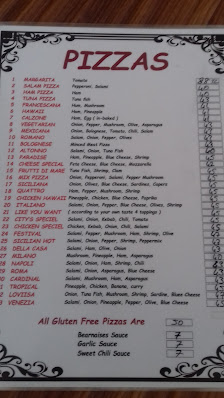 PIZZAS
1 MARGARITA Tomato
2 SALAM PIZZA Pepperoni, Salami
3 HAM PIZZA Ham
4 TUNA PIZZA Tuna fish
5 FRANCESCANA Ham, Mushroom
6 HAWAII Ham, Pineapple
7 CALZONE Ham, Egg ( in baked )
8 VEGETARIAN Onion, Pepper, Mushroom, Olive, Asparagus
9 MEXICANA Onion, Bolognese, Tomato, Chili, Salam
10 ROMANO Salam, Onion, Pepper, Olive
11 BOLOGNESE Minced Meat Pizza
12 ALTONNO Salami, Onion, Tuna Fish
13 PARADISE Ham, Pineapple, Blue Cheese, Shrimp
14 CHEESE SPECIAL Feta Cheese, Blue Cheese, Mozzarella
15 FRUTTI DI MARE Tuna Fish, Shrimp, Clam
16 MIX PIZZA Salami, Onion, Pepper, Mushroom, Ham
17 SICILIANA Onion, Olive, Blue Cheese, Sardines, Capers
18 QUATTRO Ham, Pepper, Mushroom, Shrimp
19 CHICKEN HAWAII Pineapple, Chicken, Blue Cheese, Paprika
20 ITALIANO Salami, Onion, Pepper, Olive, Blue Cheese, Shrimp
21 LIKE YOU WANT ( according to your own taste 4 toppings )
22 CITY'S SPECIEL Salami, Onion, Kebab, Chili, Tomato
23 CHICKEN SPECIEL Chicken, Kebab, Onion, Chili, Salami
24 FESTIVAL Salami, Pepper, Mushroom, Ham, Shrimp, Olive
25 SICILIAN HOT Salami, Onion, Pepper, Shrimp, Pepperonis
26 DELLA CASA Salami, Ham, Olive, Onion
27 MILANO Mushroom, Pineapple, Ham, Asparagus
28 NAPOLI Salami, Onion, Ham, Shrimp, Chili
29 ROMA Salami, Onion, Asparagus, Blue Cheese
CARDINAL Salami, Ham, Mushroom, Asparagus
TROPICAL Pineapple, Chicken, Banana, curry
LOVIISA Onion, Tuna Fish, Mushroom, Shrimp, Sardine, Blues Cheese
VENEZIA Salami, Onion, Pineapple, Mushroom, Pepper, Olive, Blue Cheese
All Gluten Free Pizzas Are 50
Bearnaises Sauce 7
Garlic Sauce 7
Sweet Chili Sauce 7